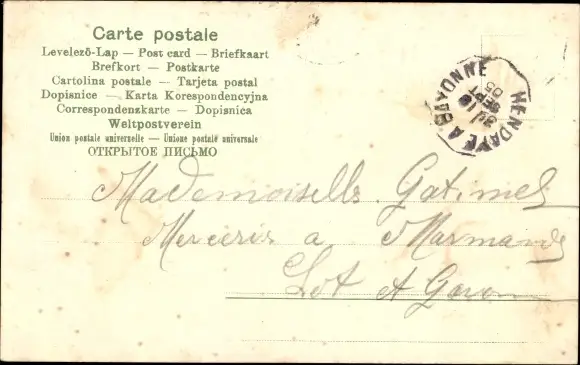 Carte postale
Levelezö-Lap — Post card — Briefkaart
Brefkort — Postkarte
Cartolina postale — Tarjeta postal
Dopisnice — Karta Korespondencyjna
Correspondenzkarte — Dopisnica
Weltpostverein
Union postale universelle — Unione postale universale
ОТКРЫТОЕ ПИСЬМО
HENDAYE A BAYONNE
SEPT
05
Mademoiselle Gatimel
Mercerie a Marmande
Lot et Garonne